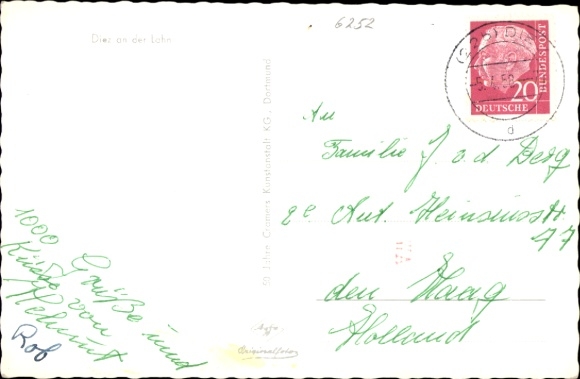 6252
Diez an der Lahn
DEUTSCHE
BUNDESPOST
20
An
Familie J. v. d. Berg
2e Ant. Heinsiusstr.
77
den Haag
Holland
1000 Grüße und
Küsse von
Helmut
Rob
50 Jahre Cramers Kunstanstalt KG., Dortmund
Agfa
Originalfoto